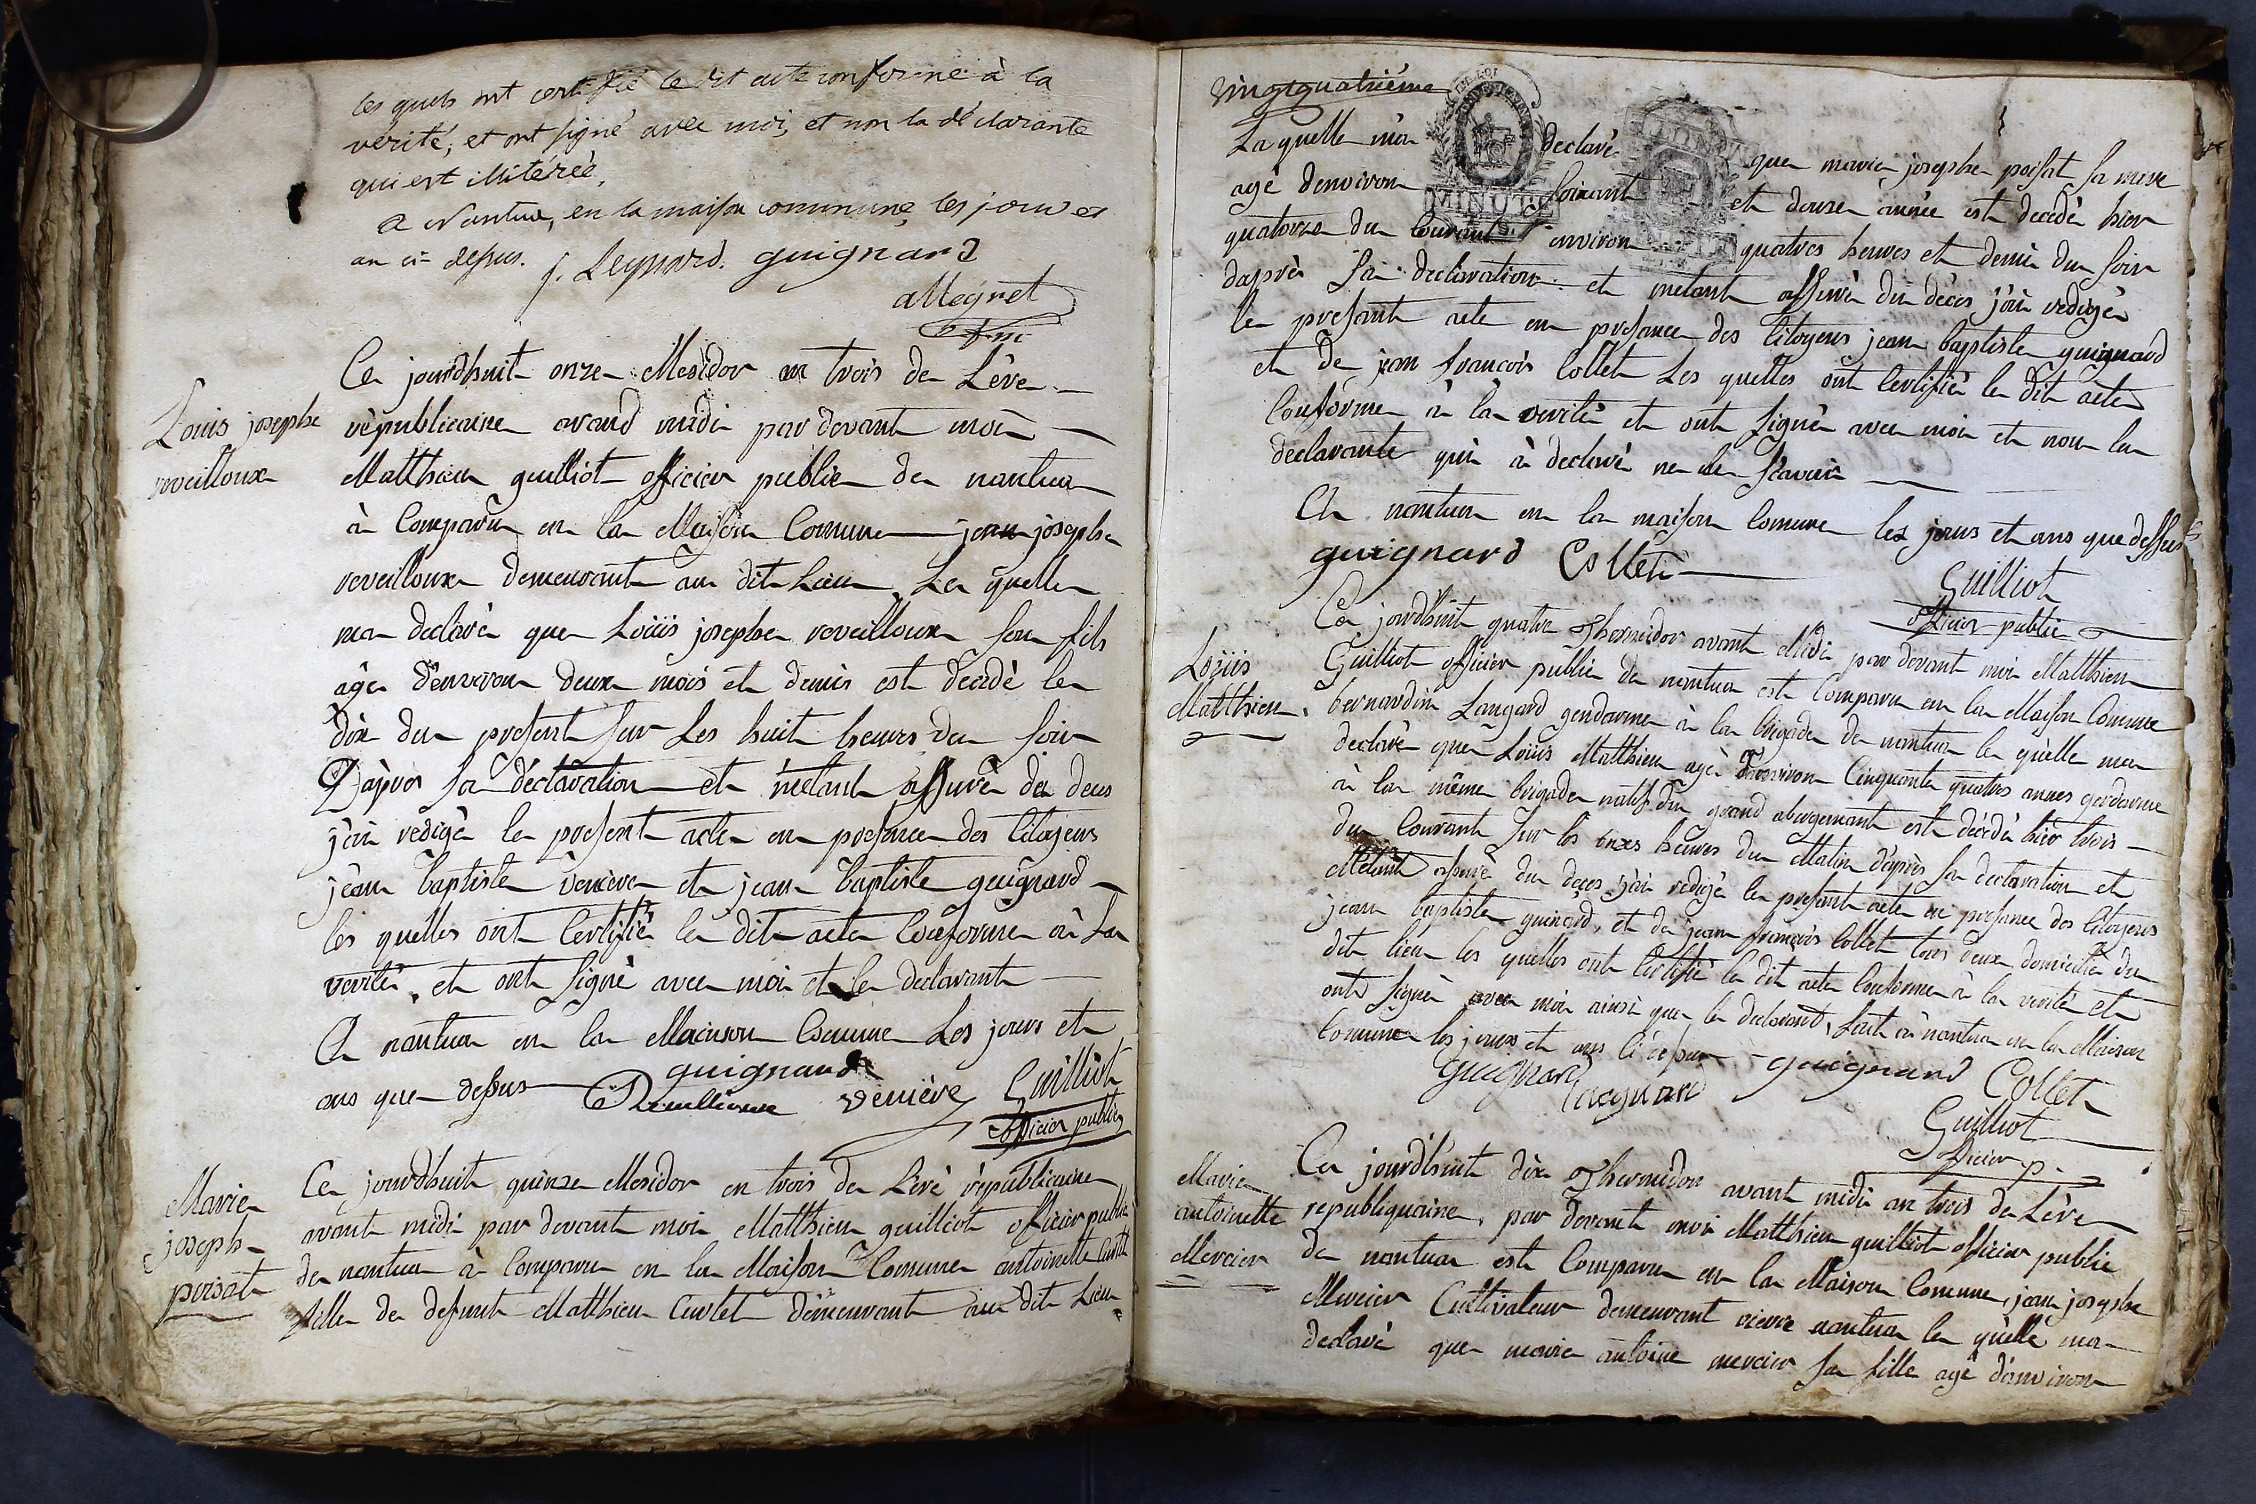 les quels ont certifié le dit acte conforme à la
vérité, et ont signé avec moi, et non la déclarante
qui est illitérée,
a Nantua, en la maison commune, les jour et
an ci dessus. j. Leynard. guignard
allegnet
Louis josephe
reveilloux
Ce jourdhuit onze Mesidor an trois de L'ére
républicaine avand midi par devant moi
Matthieu guilliot officier public de nantua
à Comparu en la Maison Comune jean josephe
reveilloux demeurant au dit Lieu, Le quelle
ma declaré que Loüis josephe reveilloux son fils
âgé d'environ deux mois et demis est decedè le
dix du present sur Les huit heures du soir
D'après sa déclaration et m'etant assurè du deces
j'ai redigé le present acte en presence des Citoyens
jean baptiste veniere et jean baptiste guignard
les quelles ont Certifié le dit acte Conforme à La
verité, et ont signé avec moi et le declarant
A nantua en la Maison Comune Les jours et
ans que dessus
guignard
Reveilloux veniére Guilliot
officier public
Marie
joseph
poisat
Ce jourdhuit quinze Mesidor en trois de L'éré républicaine
avant midi par devant moi Matthieu guilliot officier public
de nantua à Comparu en la Maison Comune antoinette Curtet
fille de defunt Matthieu Curtet démeurant au dit Lieu
vingtquatriéme
Laquelle m'a declaré que marie josephe poisat sa mere
agé denviron soixant et douze année est decedè hier
quatorze du Courant environ quatres heures et demi du soir
daprès sa declaration et metant assuré du décès j'ai redigée
le present acte en presance des Citoyens jean baptiste guignard
et de jean francois Collet Les quelles ont Certifié le dit acte
Conforme à la verité et ont signé avec moi et non la
declarante qui à declaré ne le scavoir
A nantua en la maison Comune les jours et ans que dessus
guignard Collet
Guilliot
officier public
Loüis
Matthieu
Ce jourdhuit quatre Thermidor avant Midi par devant moi Matthieu
Guilliot officier public de nantua est Comparu en la Maison Comune
bernardin Langard gendarme à la brigade de nantua le quelle ma
declaré que Loüis Matthieu agé d'environ Cinquante quatres annes gendarme
à la même brigade natif du grand abergemant est décédé hier trois
du Courant sur les onzes heures du Matin d'après sa declaration et
Metant assuré du deces j'ai redigé le present acte en presance des Citoyens
jean baptiste guinard, et de jean françois Collet tous deux domicilié du
dit lieu les quelles ont Certifié le dit acte Conforme à la verité et
onts signé avec moi ainsi que le declarant, fait à nantua en la Maison
Comune les jours et ans Ci dessus
guignard Collet
Guilliot
officier p.
Marie
antoinette
Mercier
Ce jourd'huit dix Thermidor avant midi an trois de L'ére
republiquaine, par devant moi Matthieu guilliot officier public
de nantua est Comparu en la Maison Comune, jean josephe
Mercier Cultivateur demeurant rierre nantua le quelle ma
declaré que marie antoine mercier sa fille agé d'environ
MINUTE